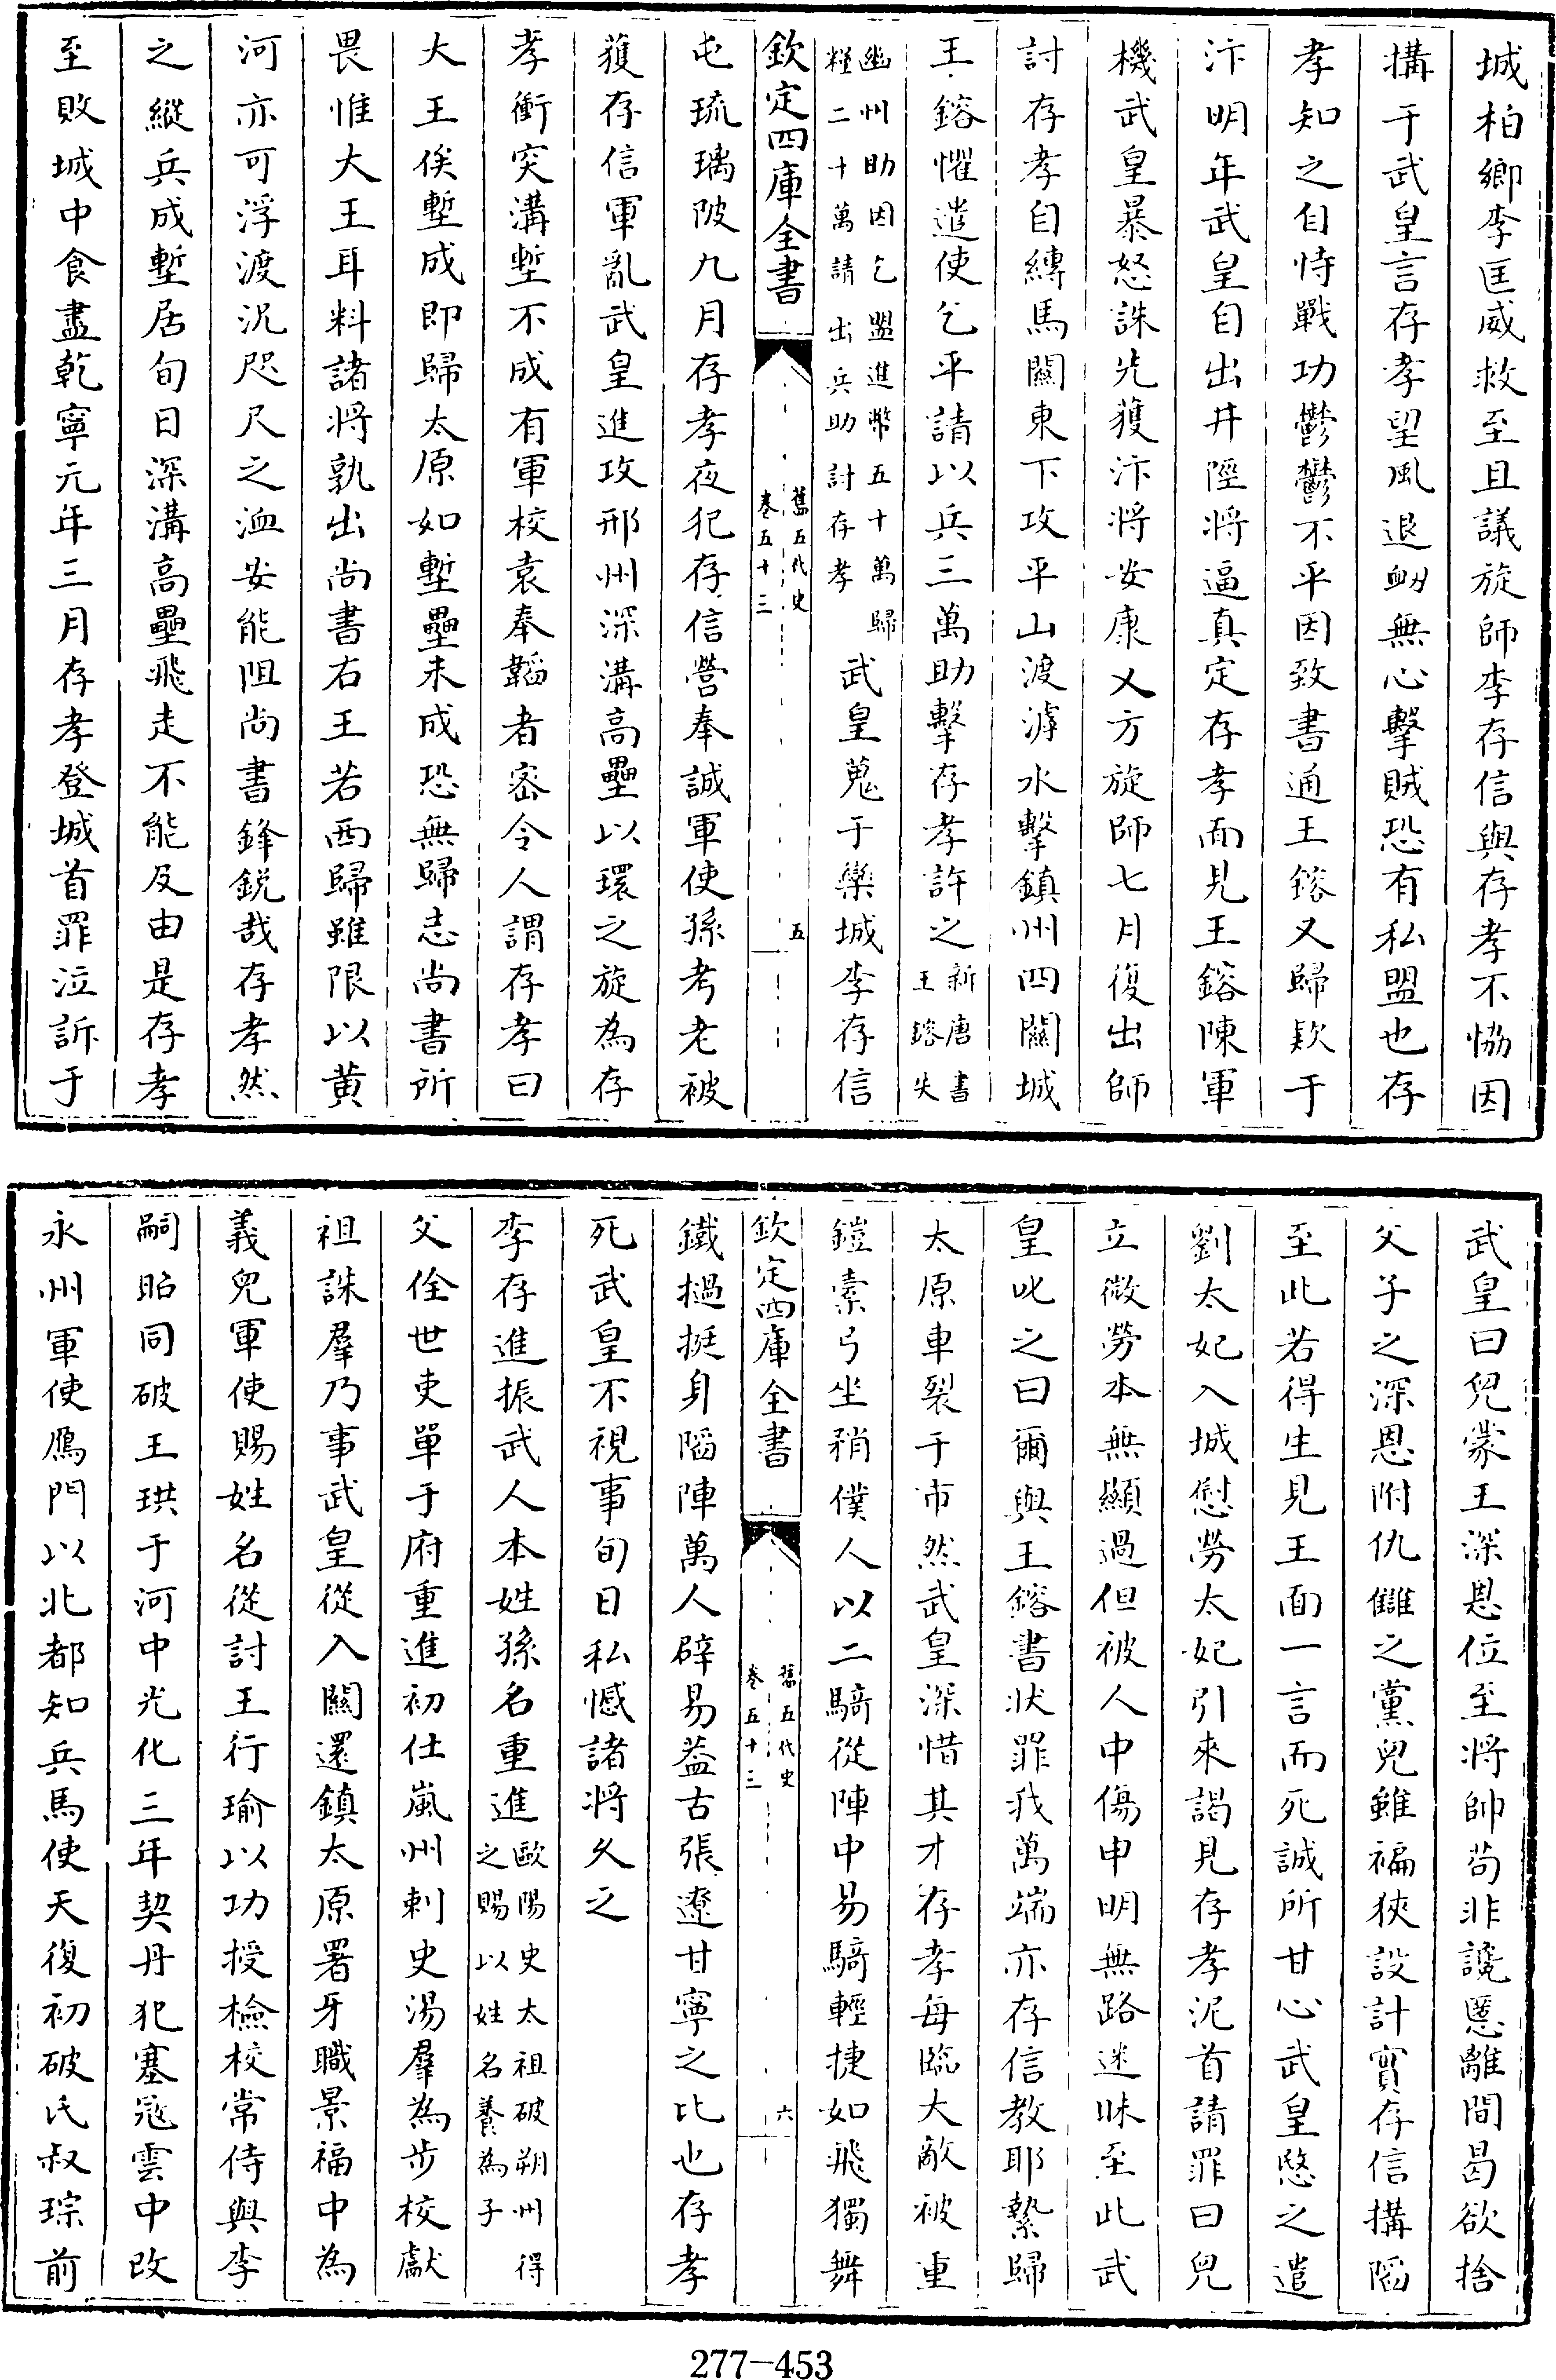 城柏鄉李匡威救至且議旋師李存信與存孝不恊因
搆于武皇言存孝望風退衂無心擊賊恐有私盟也存
孝知之自恃戰功鬱鬱不平因致書通王鎔又歸款于
汴明年武皇自出井陘將逼真定存孝面見王鎔陳軍
機武皇暴怒誅先獲汴將安康乂方旋師七月復出師
討存孝自縛馬關東下攻平山渡滹水擊鎮州四關城
王鎔懼遣使乞平請以兵三萬助擊存孝許之新唐書
王鎔失
幽州助因乞盟進幣五十萬歸
糧二十萬請出兵助討存孝
武皇蒐于欒城李存信
欽定四庫全書
舊五代史
卷五十三
五
屯琉璃陂九月存孝夜犯存信營奉誠軍使孫考老被
獲存信軍亂武皇進攻邢州深溝高壘以環之旋為存
孝衝突溝塹不成有軍校袁奉韜者密令人謂存孝曰
大王俟塹成即歸太原如塹壘未成恐無歸志尚書所
畏惟大王耳料諸將孰出尚書右王若西歸雖限以黄
河亦可浮渡況咫尺之洫安能阻尚書鋒鋭哉存孝然
之縱兵成塹居旬日深溝高壘飛走不能及由是存孝
至敗城中食盡乾寧元年三月存孝登城首罪泣訴于
武皇曰兒蒙王深恩位至將帥苟非讒慝離間曷欲捨
父子之深恩附仇讎之黨兒雖褊狹設計實存信搆陷
至此若得生見王面一言而死誠所甘心武皇愍之遣
劉太妃入城慰勞太妃引來謁見存孝泥首請罪曰兒
立微勞本無顯過但被人中傷申明無路迷昧至此武
皇叱之曰爾與王鎔書狀罪我萬端亦存信教耶縶歸
太原車裂于市然武皇深惜其才存孝每臨大敵被重
鎧橐弓坐矟僕人以二騎從陣中易騎輕捷如飛獨舞
欽定四庫全書
舊五代史
卷五十三
六
鐵撾挺身陷陣萬人辟易葢古張遼甘寧之比也存孝
死武皇不視事旬日私憾諸將久之
李存進振武人本姓孫名重進歐陽史太祖破朔州得
之賜以姓名養為子
父佺世吏單于府重進初仕嵐州刺史湯羣為步校獻
祖誅羣乃事武皇從入關還鎮太原署牙職景福中為
義兒軍使賜姓名從討王行瑜以功授檢校常侍與李
嗣昭同破王珙于河中光化三年契丹犯塞冦雲中改
永州軍使鴈門以北都知兵馬使天復初破氏叔琮前
277-453